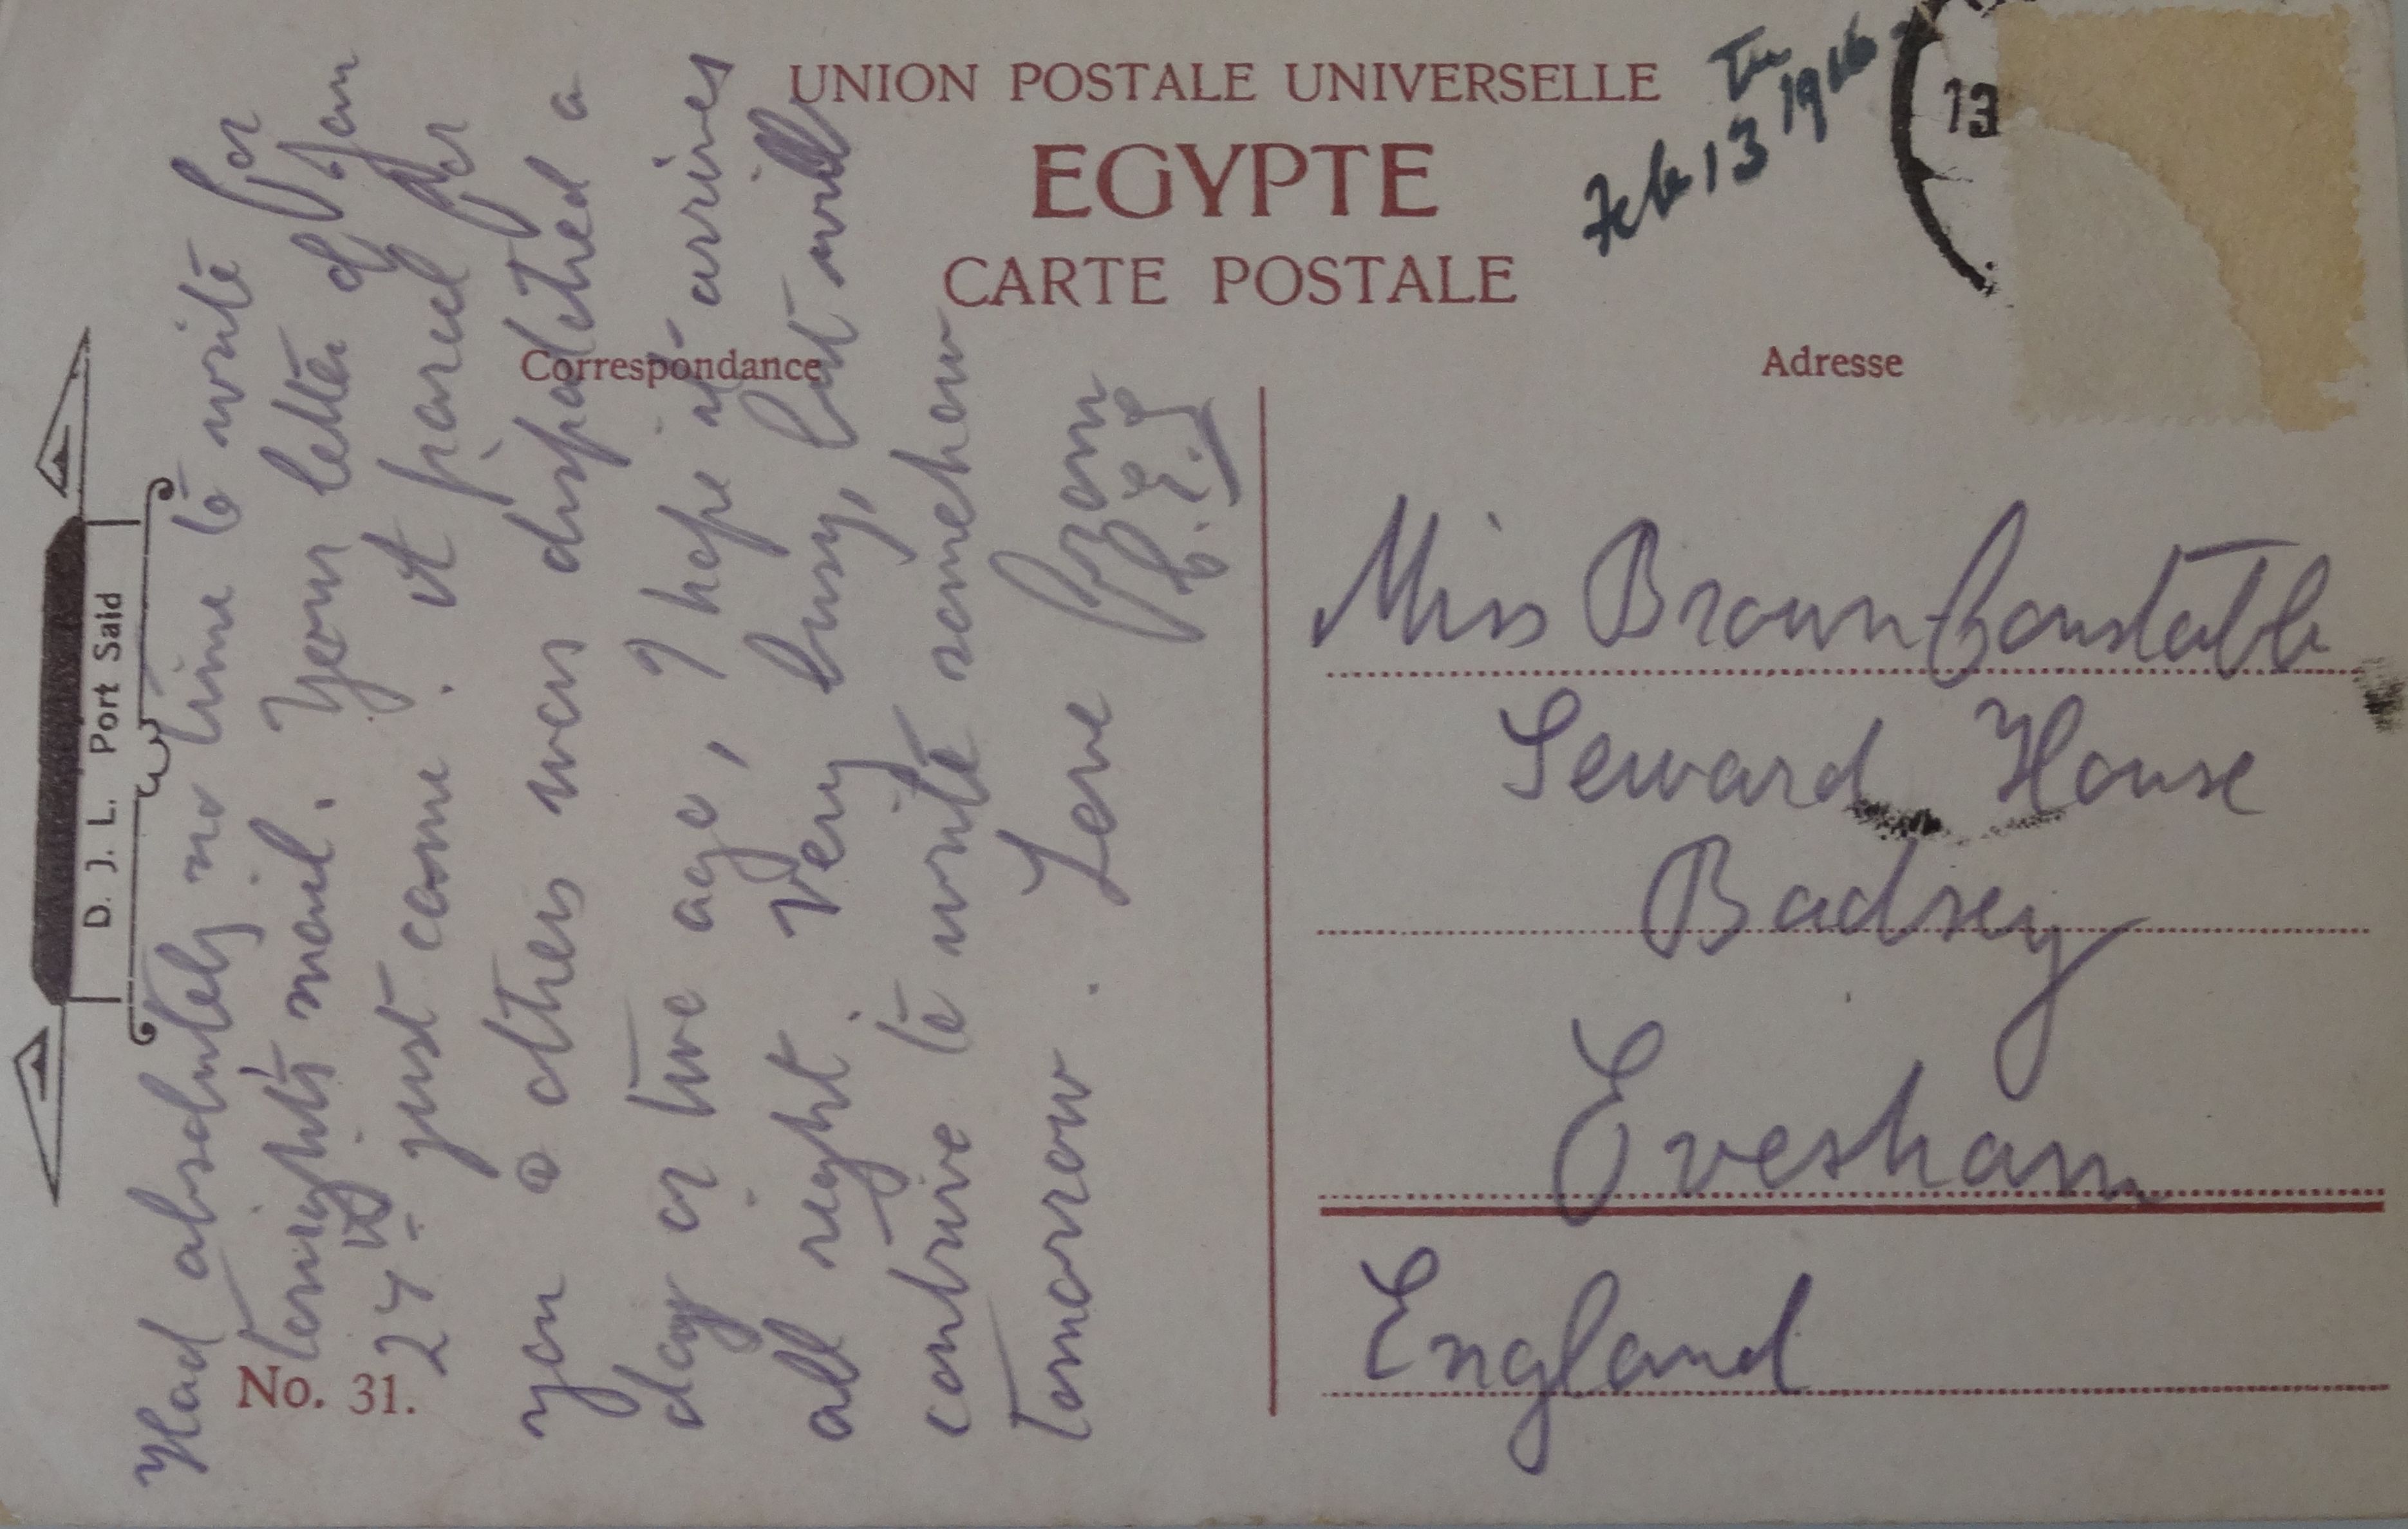 UNION POSTALE UNIVERSELLE
EGYPTE
CARTE POSTALE
Correspondance
Adresse
Feb 13 1916
13
D. J. L. Port Said
No. 31.
Had absolutely no time to write for
tonight's mail. Your letter of Jan
just come. A parcel for
you & others was dispatched a
day or two ago, I hope it arrives
all right. Very busy, but will
contrive to write somehow
tomorrow. Love from
Miss Brown-Constable
Seward House
Badsey
Evesham
England